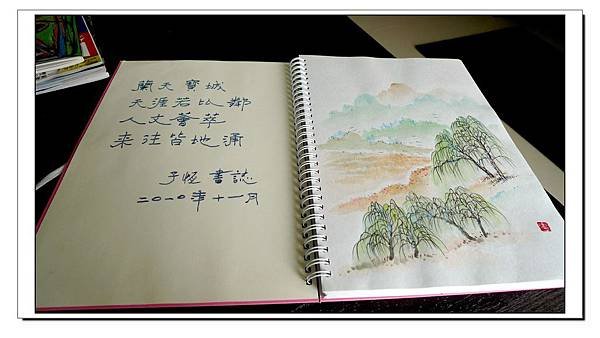 蘭天寶城
天涯若比鄰
人文薈萃
來往皆地涌
子恆 書誌
二〇一〇年十一月